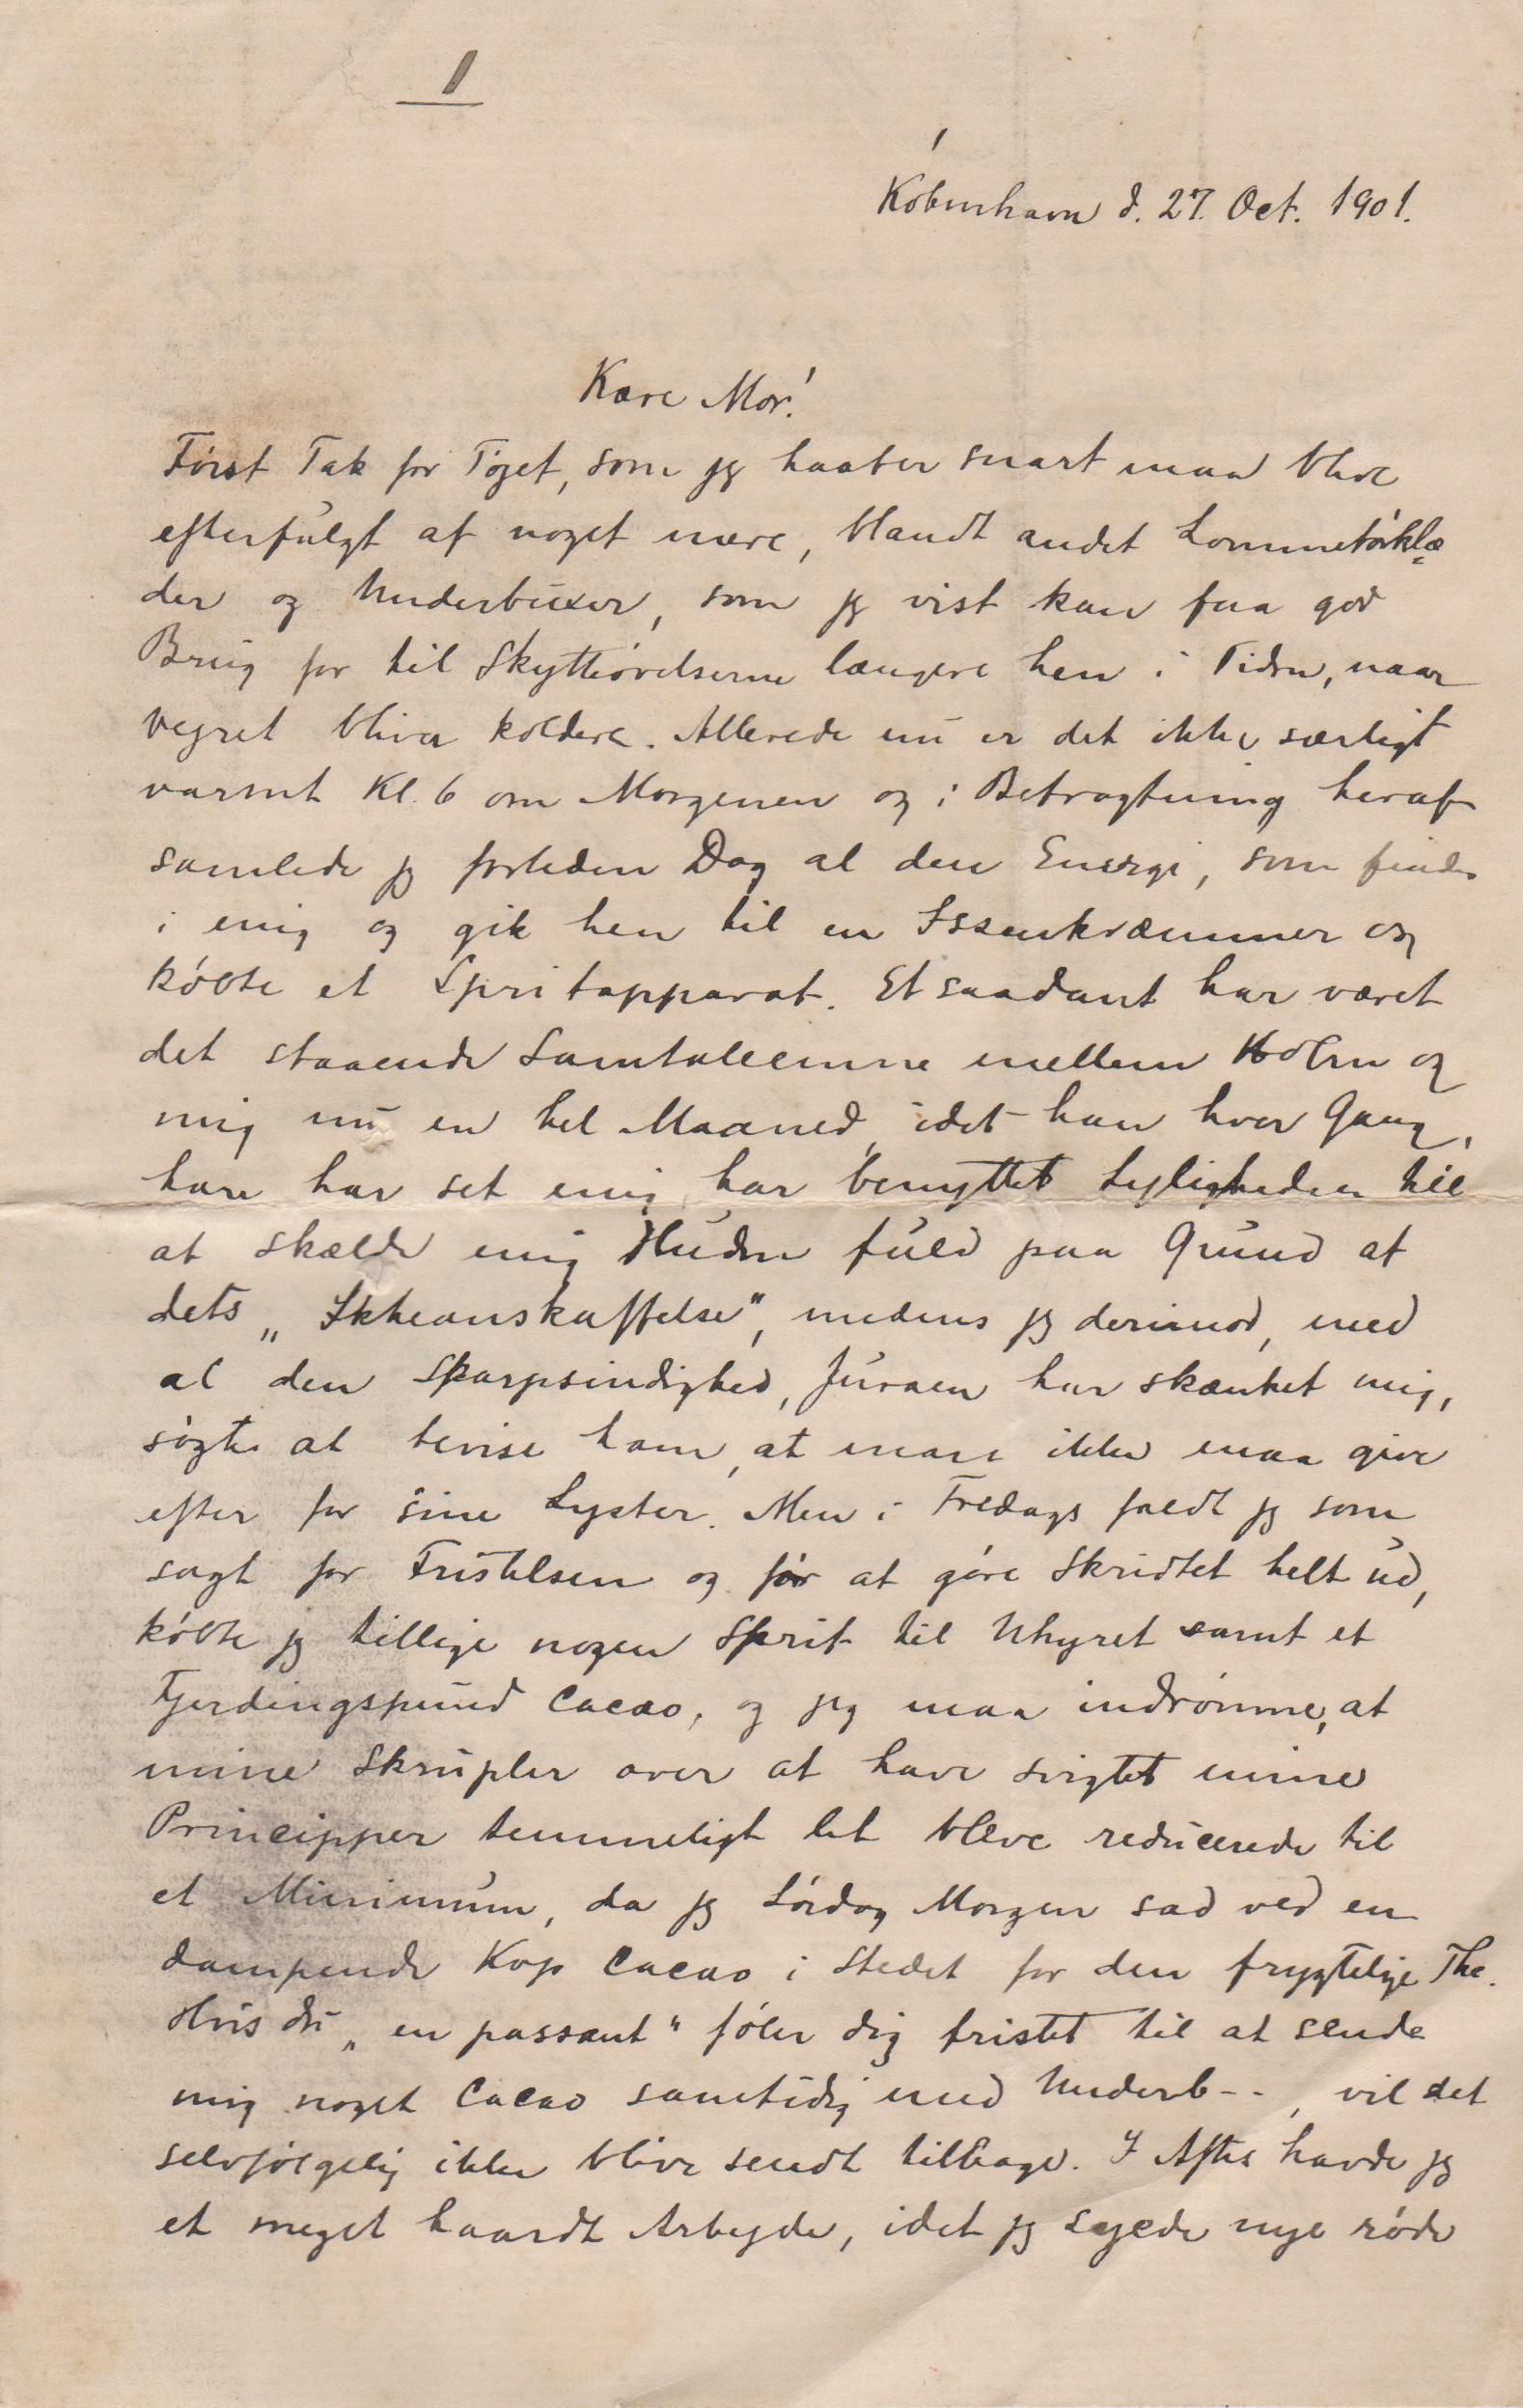 1
København d. 27. Oct. 1901.
Kære Mor!
Først Tak for Tøjet, som jeg haaber snart maa blive
efterfulgt af noget mere, blandt andet Lommetørklæ
der og Underbuxer, som jeg vist kan faa god
Brug for til Skytteøvelserne længere hen i Tiden, naar
Vejret bliver koldere. Allerede nu er det ikke særligt
varmt Kl. 6 om Morgenen og i Betragtning heraf
samlede jeg forleden Dag al den Energi, som findes
i mig og gik hen til en Issenkræmmer og
købte et Spritapparat. Et saadant har været
det staaende Samtaleemne mellem Holm og
mig nu en hel Maaned, idet han hver Gang,
han har set mig, har benyttet Lejligheden til
at skælde mig Huden fuld paa Grund af
dets „Ikkeanskaffelse", medens jeg derimod, med
al den Skarpsindighed, Juraen har skænket mig,
søgte at bevise ham, at man ikke maa give
efter for sine Lyster. Men i Fredags faldt jeg som
sagt for Fristelsen og for at gøre Skridtet helt ud,
købte jeg tillige nogen Sprit til Uhyret samt et
Fjerdingspund Cacao, og jeg maa indrømme, at
mine Skrupler over at have svigtet mine
Principper temmeligt let bleve reducerede til
et Minimum, da jeg Lørdag Morgen sad ved en
dampende Kop Cacao i Stedet for den frygtelige The.
Hvis du „en passant" føler dig fristet til at sende
mig noget Cacao samtidig med Underb--, vil det
selvfølgelig ikke blive sendt tilbage. I Aftes havde jeg
et meget haardt Arbejde, idet jeg syede nye røde